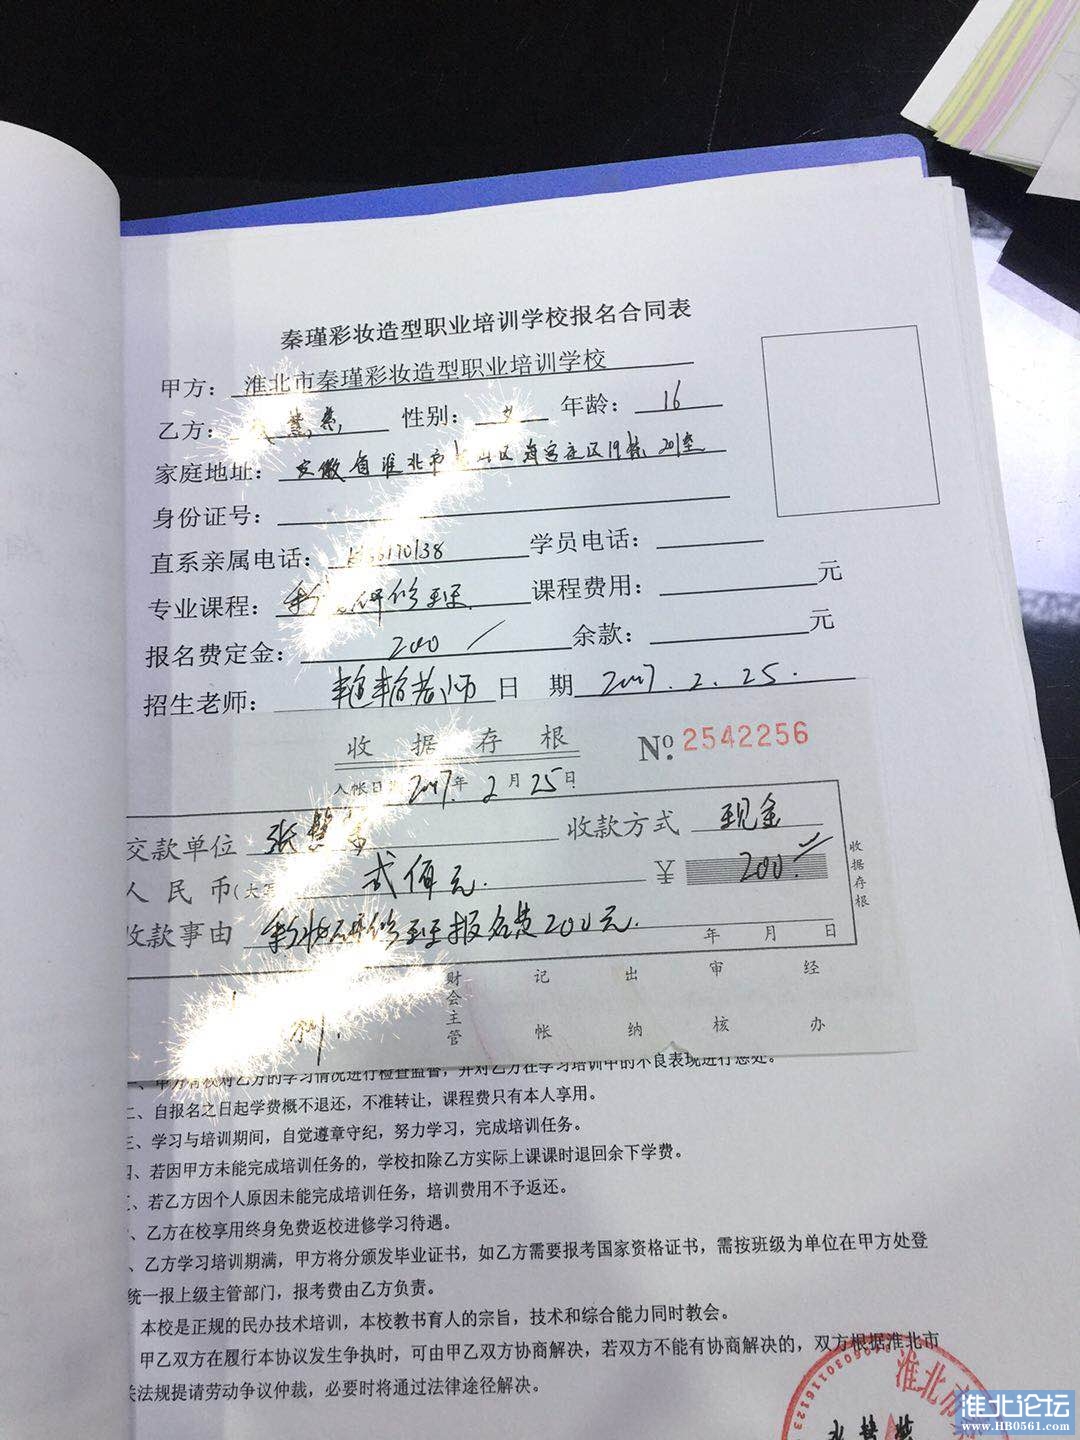 秦瑾彩妆造型职业培训学校报名合同表
甲方： 淮北市秦瑾彩妆造型职业培训学校
乙方： 性别： 女 年龄： 16
家庭地址： 安徽省淮北市 山区 庄区19栋 201室
身份证号：
直系亲属电话： 学员电话：
专业课程： 研修班 课程费用： 元
报名费定金： 200 余款： 元
招生老师： 老师 日 期 2017.2.25.
收据存根 No. 2542256
入帐日 2017年2月25日
交款单位 张慧 收款方式 现金
人民币(大 贰佰元. ¥ 200
收据存根
收款事由 彩妆研修班报名费200元.
年 月 日
财会主管 记帐 出纳 审核 经办
一、甲方有权对乙方的学习情况进行检查监督，并对乙方在学习培训中的不良表现进行惩处。
二、自报名之日起学费概不退还，不准转让，课程费只有本人享用。
三、学习与培训期间，自觉遵章守纪，努力学习，完成培训任务。
四、若因甲方未能完成培训任务的，学校扣除乙方实际上课课时退回余下学费。
、若乙方因个人原因未能完成培训任务，培训费用不予返还。
、乙方在校享用终身免费返校进修学习待遇。
、乙方学习培训期满，甲方将分颁发毕业证书，如乙方需要报考国家资格证书，需按班级为单位在甲方处登
统一报上级主管部门，报考费由乙方负责。
本校是正规的民办技术培训，本校教书育人的宗旨，技术和综合能力同时教会。
甲乙双方在履行本协议发生争执时，可由甲乙双方协商解决，若双方不能有协商解决的，双方根据淮北市
关法规提请劳动争议仲裁，必要时将通过法律途径解决。
淮北市
淮北论坛
www.HB0561.com